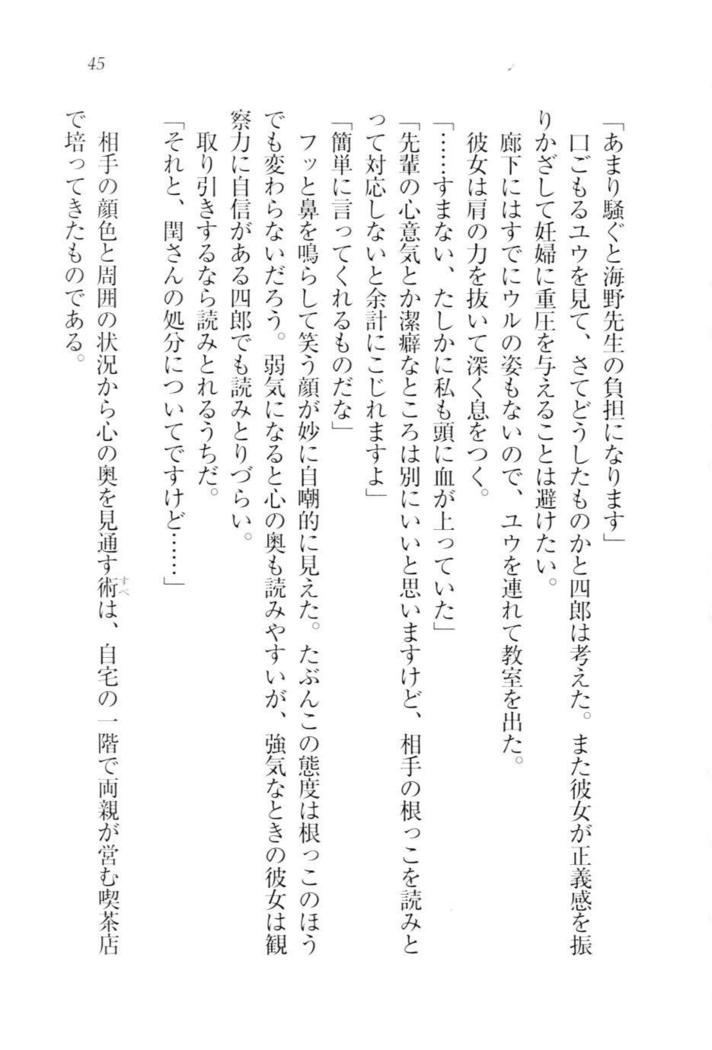 45
「あまり騒ぐと海野先生の負担になります」
口ごもるユウを見て、さてどうしたものかと四郎は考えた。また彼女が正義感を振
りかざして妊婦に重圧を与えることは避けたい。
廊下にはすでにウルの姿もないので、ユウを連れて教室を出た。
彼女は肩の力を抜いて深く息をつく。
「……すまない、たしかに私も頭に血が上っていた」
「先輩の心意気とか潔癖なところは別にいいと思いますけど、相手の根っこを読みと
って対応しないと余計にこじれますよ」
「簡単に言ってくれるものだな」
フッと鼻を鳴らして笑う顔が妙に自嘲的に見えた。たぶんこの態度は根っこのほう
でも変わらないだろう。弱気になると心の奥も読みやすいが、強気なときの彼女は観
察力に自信がある四郎でも読みとりづらい。
取り引きするなら読みとれるうちだ。
「それと、閏さんの処分についてですけど……」
相手の顔色と周囲の状況から心の奥を見通す術は、自宅の一階で両親が営む喫茶店
すべ
で培ってきたものである。